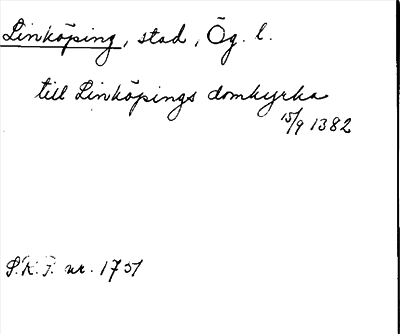 Linköping, stad, Ög. l.
till Linköpings domkyrka
15/9 1382
S.R.P. nr. 1751